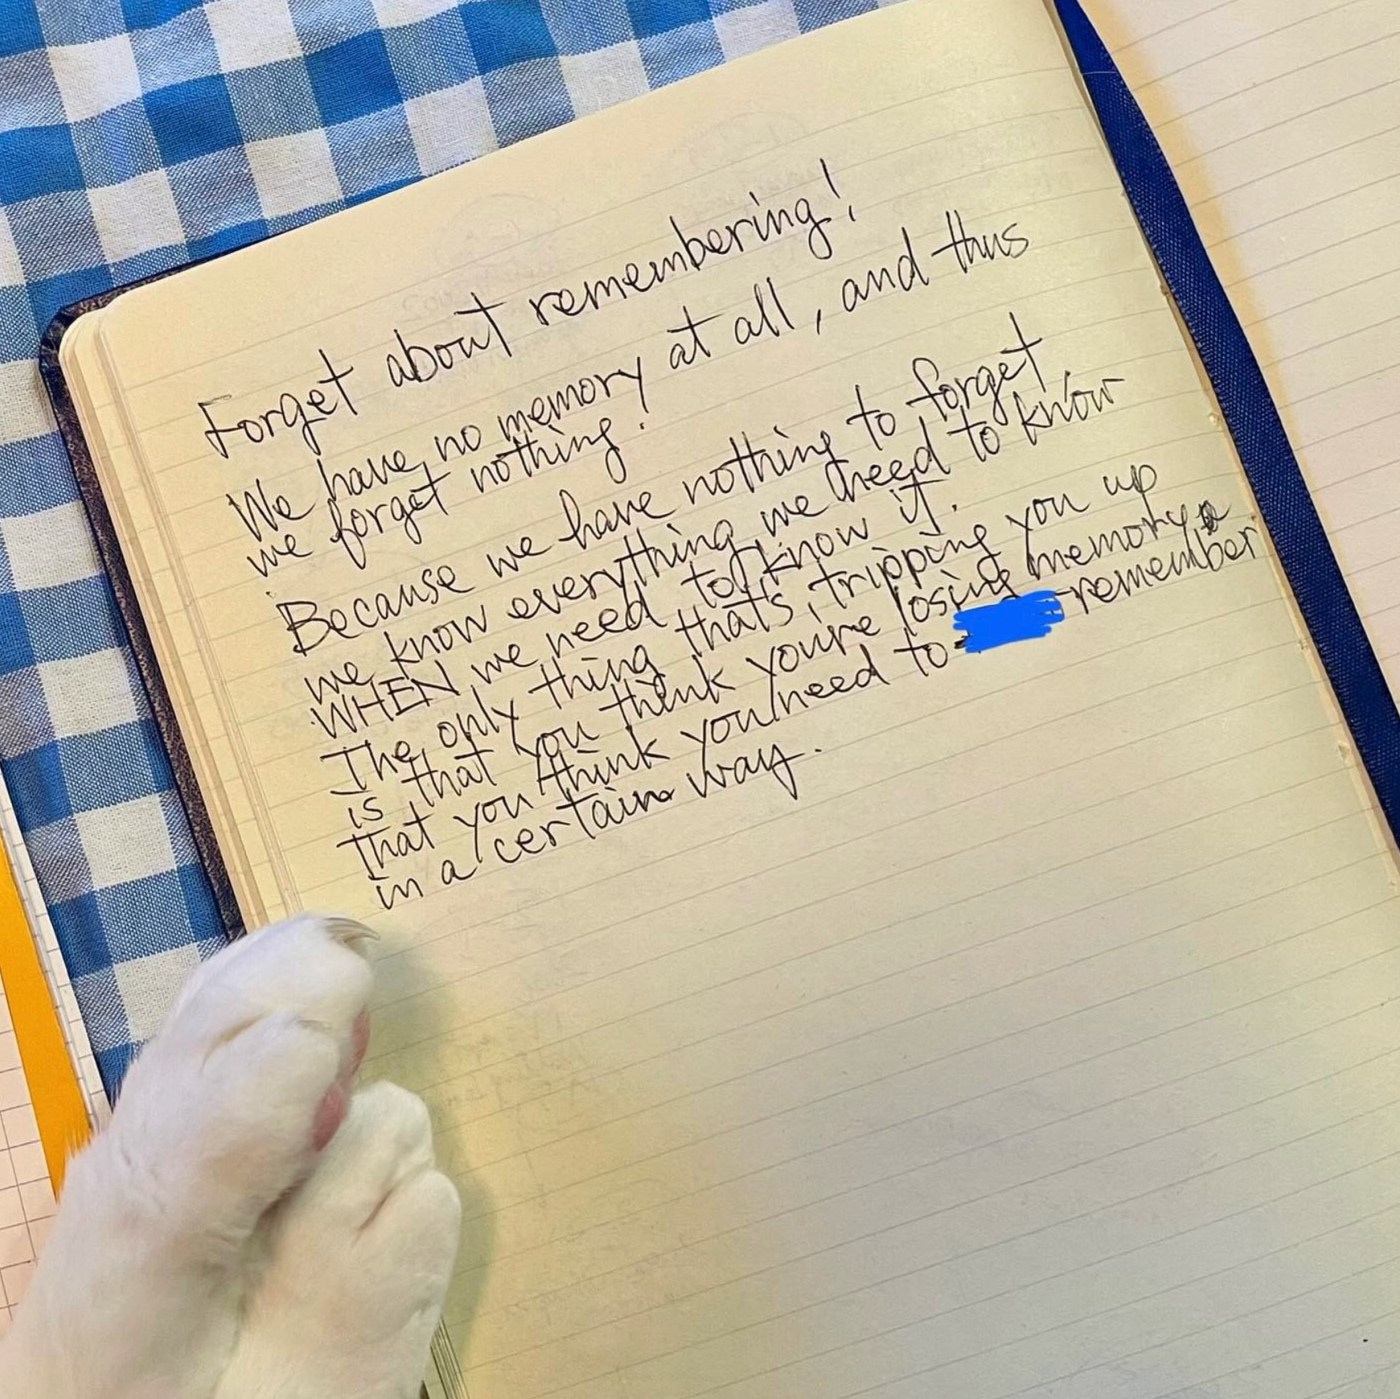 Forget about remembering!
We have no memory at all, and thus
we forget nothing!
Because we have nothing to forget
we know everything we need to know
WHEN we need to know it.
The only thing that's tripping you up
is that you think you're losing memory &
that you think you need to remember
in a certain way.